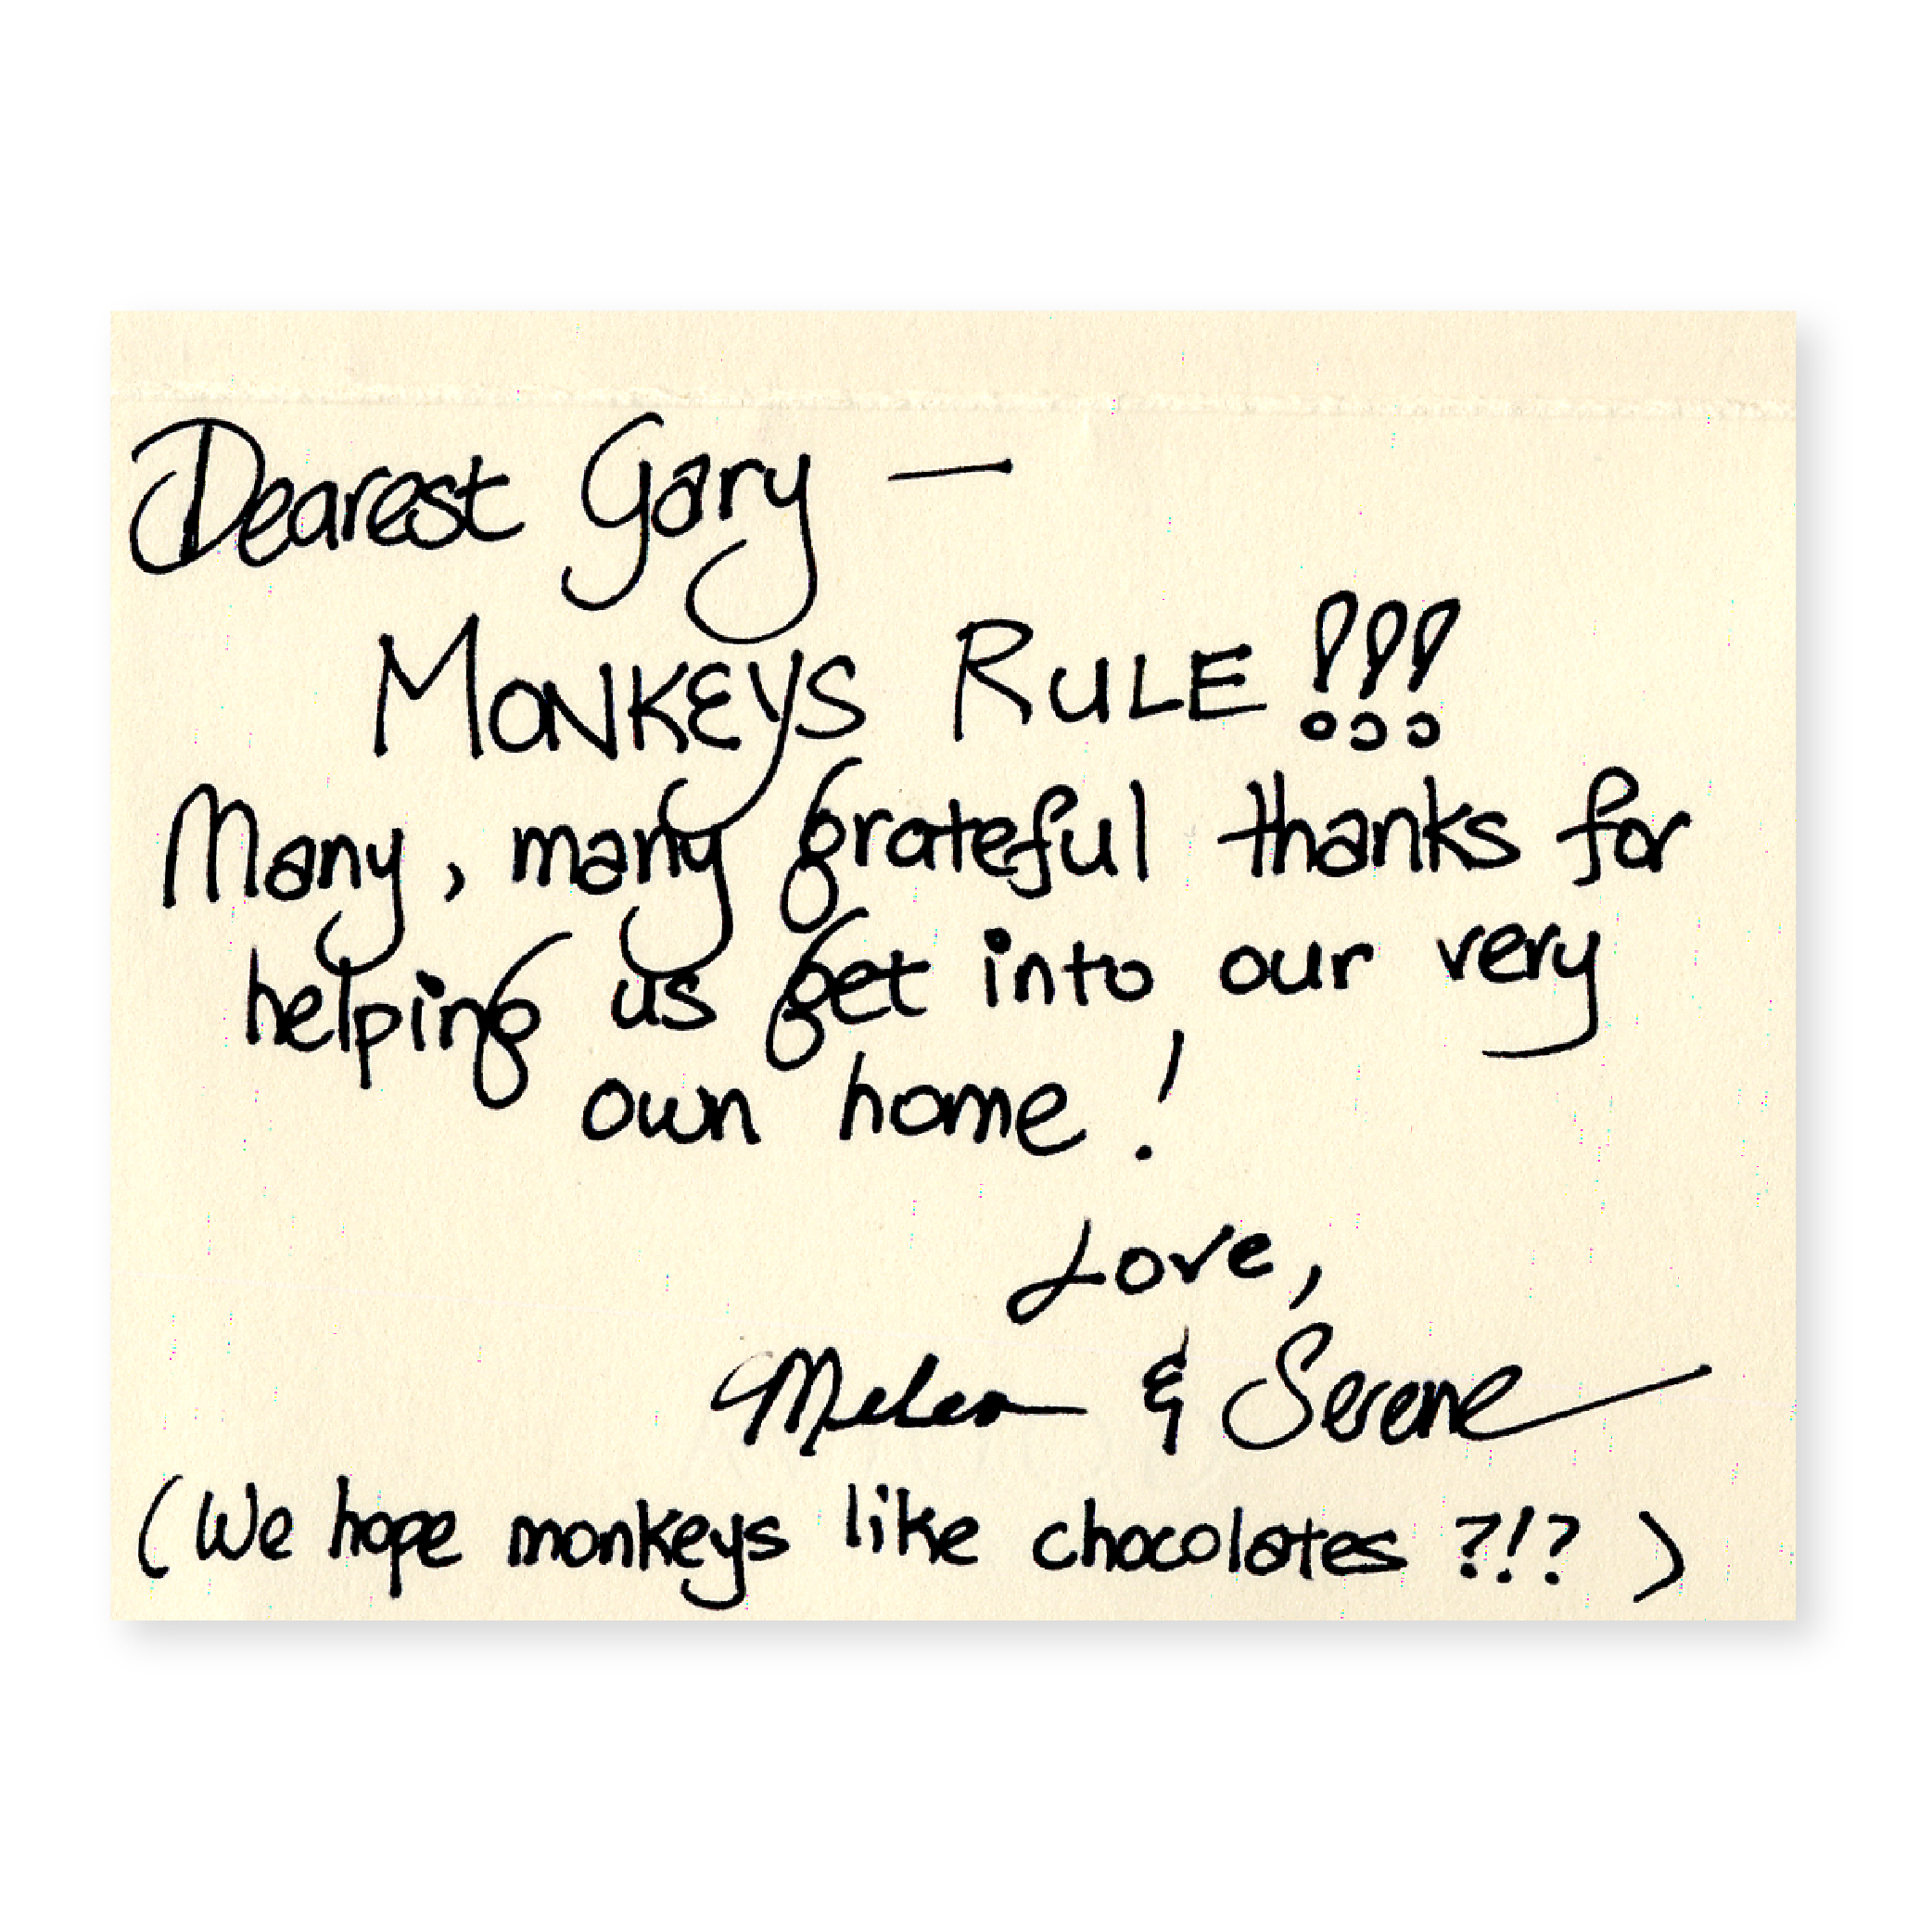 Dearest Gary —
MONKEYS RULE!!!
Many, many grateful thanks for
helping us get into our very
own home!
Love,
& Serene
(We hope monkeys like chocolates ?!?)